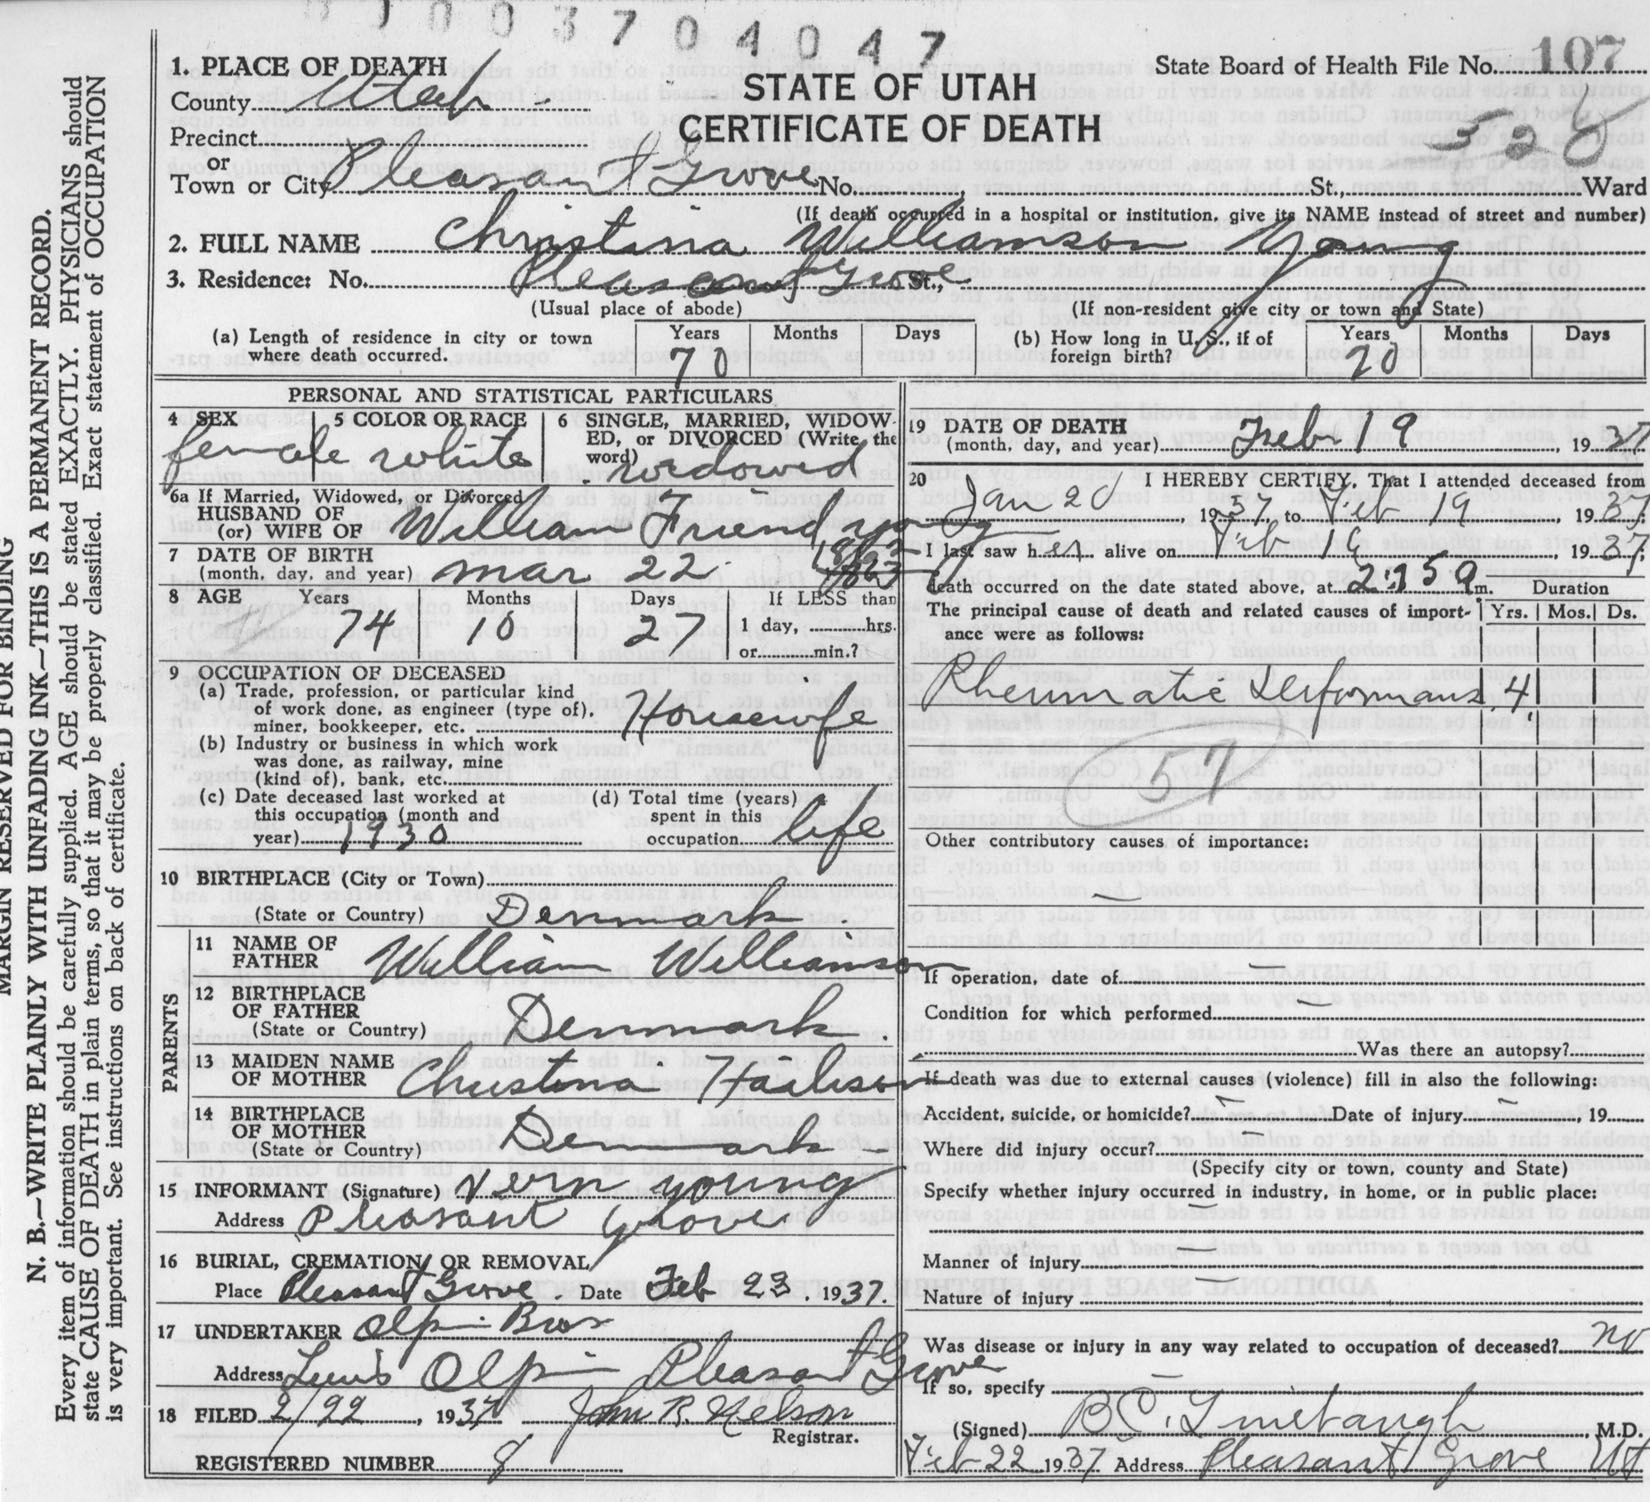 3704047
1. PLACE OF DEATH
State Board of Health File No. 107
County Utah
STATE OF UTAH
CERTIFICATE OF DEATH
528
Precinct
or
Town or City Pleasant Grove No. St., Ward
(If death occurred in a hospital or institution, give its NAME instead of street and number)
2. FULL NAME Christina Williamson Young
3. Residence: No. Pleasant Grove St.,
(Usual place of abode) (If non-resident give city or town and State)
(a) Length of residence in city or town where death occurred. Years 70 Months Days
(b) How long in U. S., if of foreign birth? Years 70 Months Days
PERSONAL AND STATISTICAL PARTICULARS
4 SEX female
5 COLOR OR RACE white
6 SINGLE, MARRIED, WIDOW-
ED, or DIVORCED (Write the
word) widowed
6a If Married, Widowed, or Divorced
HUSBAND OF
(or) WIFE OF William Friend young
7 DATE OF BIRTH
(month, day, and year) Mar 22
8 AGE Years 74 Months 10 Days 27 If LESS than
1 day, hrs.
or min.?
9 OCCUPATION OF DECEASED
(a) Trade, profession, or particular kind
of work done as engineer (type of),
miner, bookkeeper, etc. Housewife
(b) Industry or business in which work
was done, as railway, mine
(kind of), bank, etc.
(c) Date deceased last worked at
this occupation (month and
year) 1930
(d) Total time (years)
spent in this
occupation life
10 BIRTHPLACE (City or Town)
(State or Country) Denmark
PARENTS
11 NAME OF
FATHER William Williamson
12 BIRTHPLACE
OF FATHER
(State or Country) Denmark
13 MAIDEN NAME
OF MOTHER Christina
14 BIRTHPLACE
OF MOTHER
(State or Country) Denmark
15 INFORMANT (Signature) Vern young
Address Pleasant Grove
16 BURIAL, CREMATION, OR REMOVAL
Place Pleasant Grove. Date Feb 23, 1937.
17 UNDERTAKER Olpin Bros
Address Lewis Olpin Pleasant Grove
18 FILED 2/22, 1937 John R. Nelson
Registrar.
REGISTERED NUMBER 8
19 DATE OF DEATH
(month, day, and year) Feb 19 1937
20 I HEREBY CERTIFY, That I attended deceased from
Jan 20, 1937, to Feb 19, 1937.
I last saw her alive on Feb 19, 1937,
death occurred on the date stated above, at m. Duration
The principal cause of death and related causes of import-
ance were as follows: Yrs. Mos. Ds.
Rheumatic Deformans 4
57
Other contributory causes of importance:
If operation, date of
Condition for which performed
Was there an autopsy?
If death was due to external causes (violence) fill in also the following:
Accident, suicide, or homicide? Date of injury , 19
Where did injury occur?
(Specify city or town, county and State)
Specify whether injury occurred in industry, in home, or in public place:
Manner of injury
Nature of injury
Was disease or injury in any way related to occupation of deceased? no
If so, specify
(Signed) B C. , M.D.
Feb 22 1937 Address Pleasant Grove Ut
MARGIN RESERVED FOR BINDING
N. B.—WRITE PLAINLY WITH UNFADING INK—THIS IS A PERMANENT RECORD.
Every item of information should be carefully supplied. AGE should be stated EXACTLY. PHYSICIANS should
state CAUSE OF DEATH in plain terms, so that it may be properly classified. Exact statement of OCCUPATION
is very important. See instructions on back of certificate.